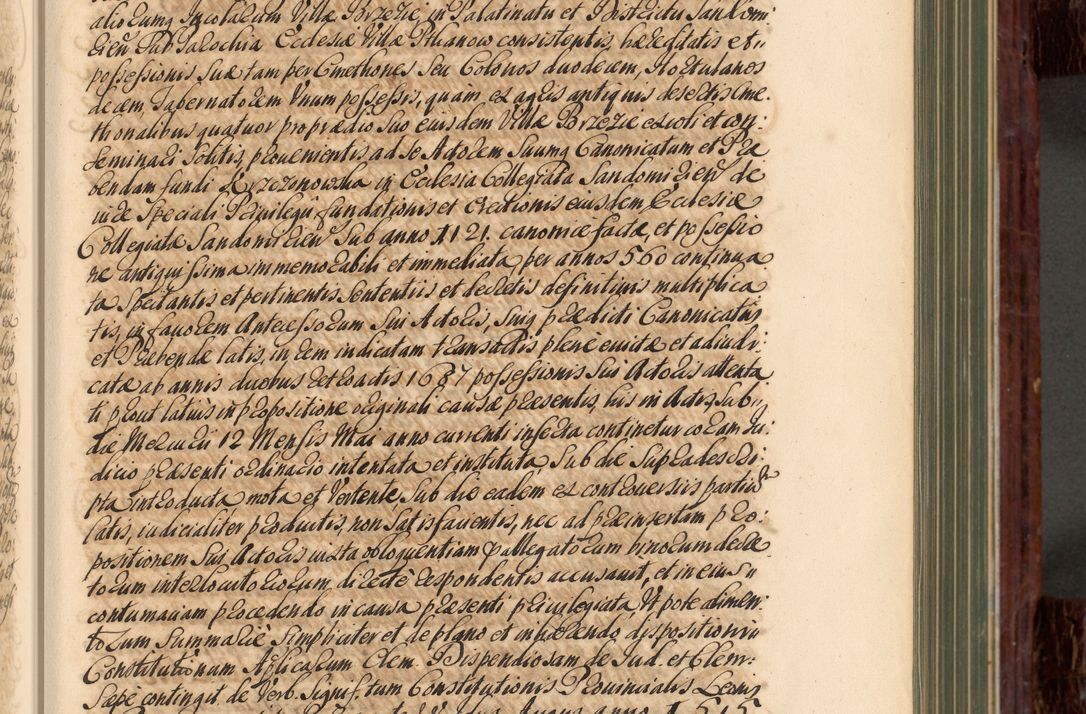 aliorumq Incolarum Villæ Brzezie, in Palatinatu et Districtu Sandomi
rien Sub Parochia Ecclesiæ Villæ Pthanow consistentis, hæreditatis et
possessionis Suæ tam per Cmethones Seu Colonos duodecim, Hortulanos
decem, Tabernatorem Unum possessis, quam ex agris antiquis desertis Cme
thonalibus quatuor pro prædio Suo eiusdem Villæ Brzezie excoli et con:
Seminari Solitis, prouenientis, ad Se Actorem Suumq Canonicatum et Præ
bendam fundi Krzczonowska in Ecclesia Collegiata Sandomirien de
iure Speciali Priuilegii fundationis et erectionis eiusdem Ecclesiæ
Collegiatæ Sandomirien Sub anno 1121 canonice factæ, et possessio
ne antiquissima immemorabili et immediata, per annos 560 continua
ta Spectantis et pertinentis Sententiis et decretis definitiuis multiplica
tis, in fauorem Antecessorum Sui Actoris, Suiq prædicti Canonicatus
et Præbendæ latis, in rem iudicatam transactis plene euictæ et adiudi:
catæ ab annis duobus retroactis 1687 possessionis Sui Actoris attenta
ti prout latius in propositione originali causæ præsentis, his in Actis, Sub
die Mercurii 12 Mensis Mai anno currenti inserta continetur coram Ju:
dicio præsenti ordinario intentata et instituta, Sub die Supradescri:
pta introducta mota et Vertente Sub die eadem ex controuersiis partium
latis, iudicialiter productis, non Satisfacientis, nec ad præinsertam pro:
positionem Sui Actoris iuxta obloquentiam p allegatorum binorum decre
torum interlocutoriorum, directe respondentis accusauit, et in eius
contumaciam procedendo in causa præsenti priuilegiata Ut pote dimen:
torum Summarie Simpliciter et de plano et inhærendo dispositioni
Constitutionum Apl̃icarum Clem. Dispendiosam de Jud. et Clem:
Sæpe contingit de Verb. Signif. tum Constitutionis Prouincialis Leonis